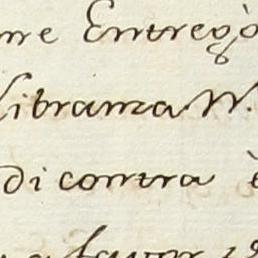 me Entregò
libranza N.
di contra è
a favor